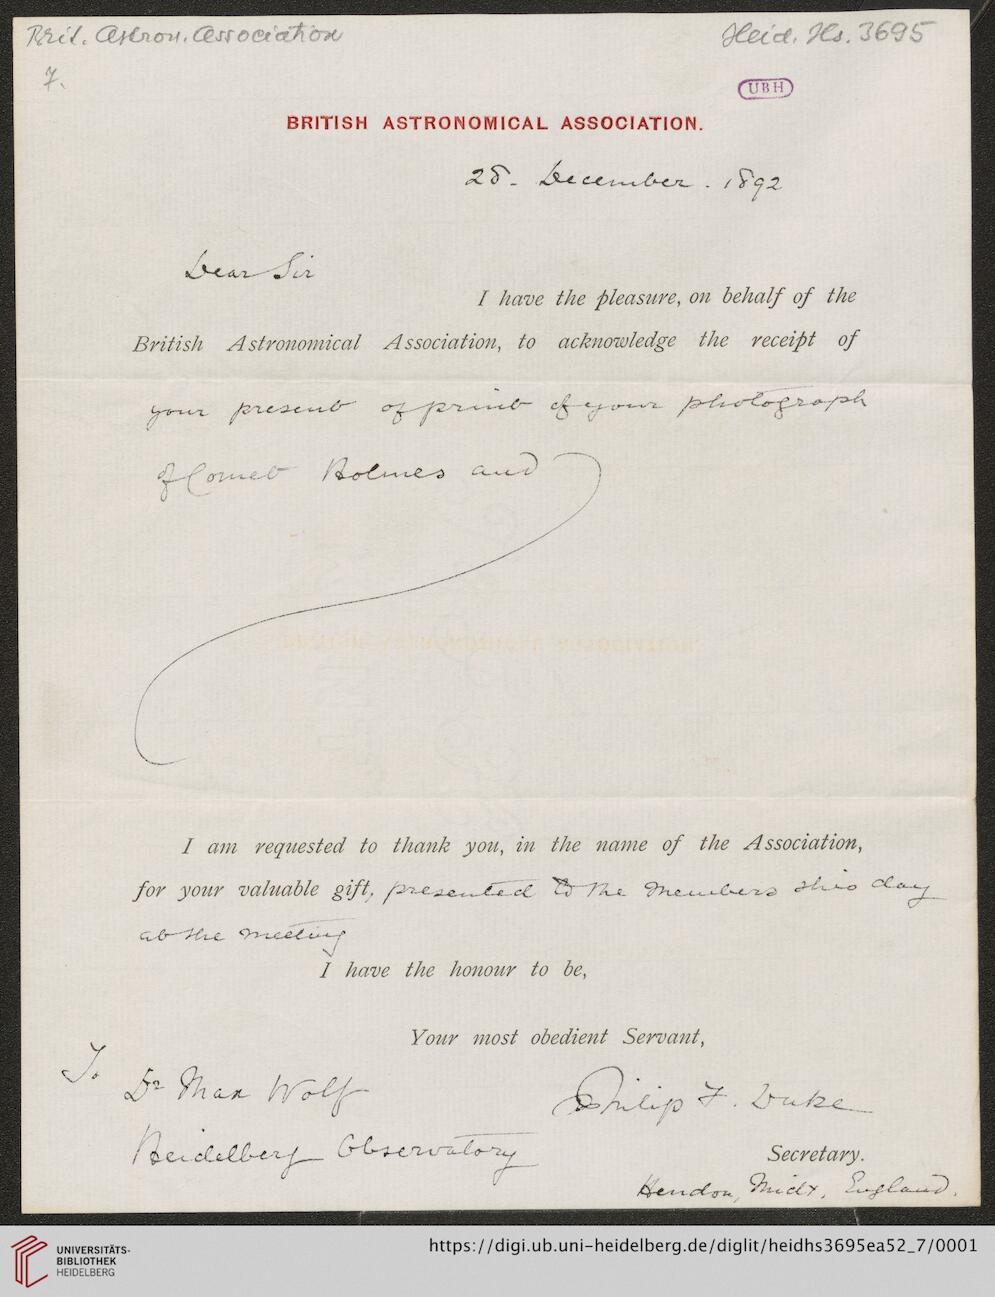 Brit. Astron. Association
Heid. Hs. 3695
7.
UBH
BRITISH ASTRONOMICAL ASSOCIATION.
28 - December . 1892
Dear Sir
I have the pleasure, on behalf of the
British Astronomical Association, to acknowledge the receipt of
your present of print of your photograph
of Comet Holmes and
I am requested to thank you, in the name of the Association,
for your valuable gift, presented to the Members this day
at the meeting
I have the honour to be,
Your most obedient Servant,
To
Dr Max Wolf
Philip F. Duke
Heidelberg Observatory
Secretary.
Hendon, Midx, England.
UNIVERSITÄTS-
BIBLIOTHEK
HEIDELBERG
https://digi.ub.uni-heidelberg.de/diglit/heidhs3695ea52_7/0001